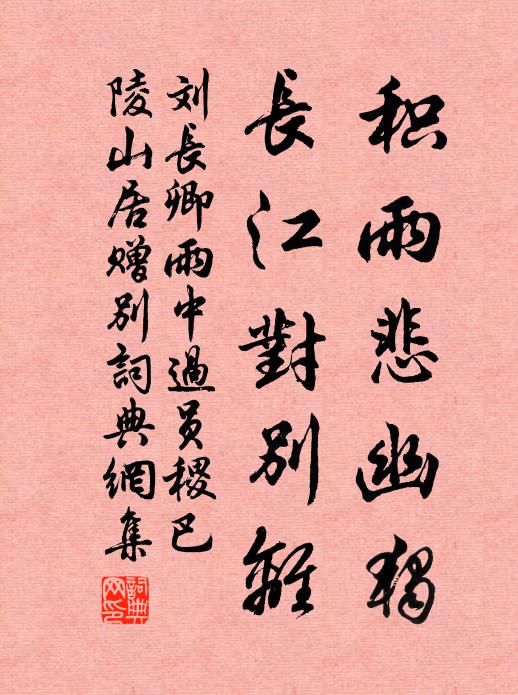 积雨悲幽独
長江對別離
刘長卿雨中過员稷巴
陵山居赠别詞典網集
詞典网印